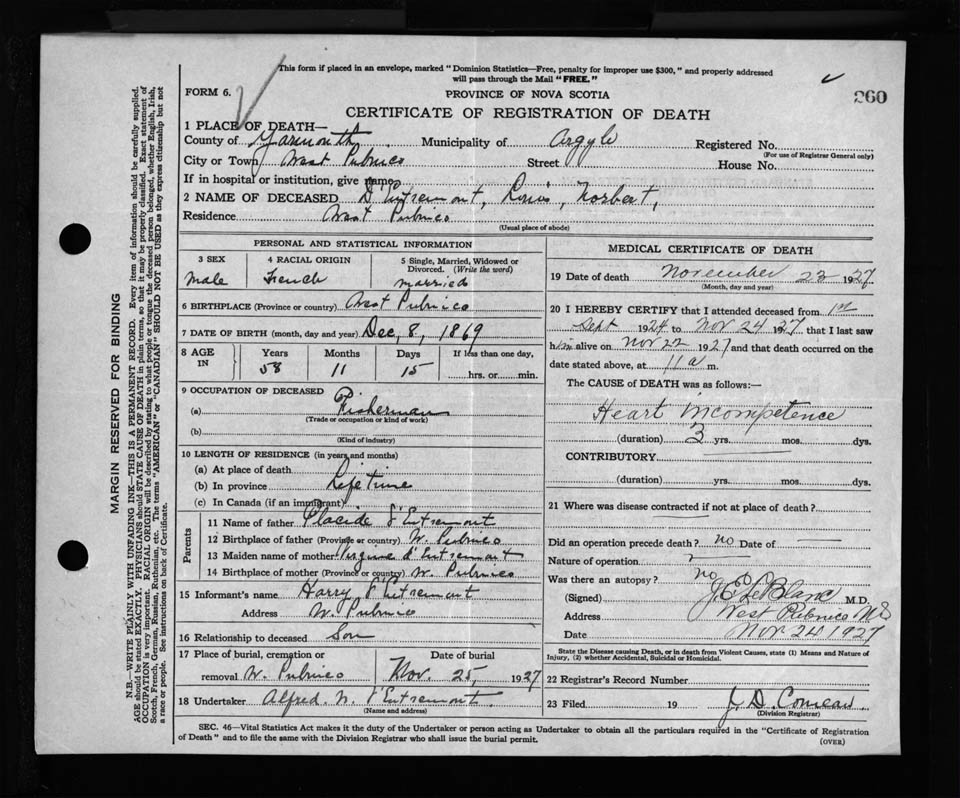 This form if placed in an envelope, marked "Dominion Statistics—Free, penalty for improper use $300," and properly addressed
will pass through the Mail "FREE."
FORM 6.
PROVINCE OF NOVA SCOTIA
260
CERTIFICATE OF REGISTRATION OF DEATH
1 PLACE OF DEATH—
County of Yarmouth Municipality of Argyle Registered No.
(For use of Registrar General only)
City or Town West Pubnico Street House No.
If in hospital or institution, give name
2 NAME OF DECEASED D'Entremont, Louis, Norbert,
Residence West Pubnico
(Usual place of abode)
PERSONAL AND STATISTICAL INFORMATION
3 SEX 4 RACIAL ORIGIN 5 Single, Married, Widowed or Divorced. (Write the word)
Male French married
6 BIRTHPLACE (Province or country) West Pubnico
7 DATE OF BIRTH (month, day and year) Dec, 8, 1869
8 AGE IN Years Months Days If less than one day,
58 11 15 hrs. or min.
9 OCCUPATION OF DECEASED
(a) Fisherman
(Trade or occupation or kind of work)
(b)
(Kind of industry)
10 LENGTH OF RESIDENCE (in years and months)
(a) At place of death
(b) In province Lifetime
(c) In Canada (if an immigrant)
Parents
11 Name of father Placide d'Entremont
12 Birthplace of father (Province or country) W. Pubnico
13 Maiden name of mother d'Entremont
14 Birthplace of mother (Province or country) W. Pubnico
15 Informant's name Harry d'Entremont
Address W. Pubnico
16 Relationship to deceased Son
17 Place of burial, cremation or Date of burial
removal W. Pubnico Nov. 25, 1927
18 Undertaker Alfred. N. d'Entremont.
(Name and address)
MEDICAL CERTIFICATE OF DEATH
19 Date of death November 23 1927
(Month, day and year)
20 I HEREBY CERTIFY that I attended deceased from 1st
Sept 1924 to Nov 24 1927, that I last saw
him alive on Nov 22 1927 and that death occurred on the
date stated above, at 11 a m.
The CAUSE of DEATH was as follows:—
Heart incompetence
(duration) 3 yrs. mos. dys.
CONTRIBUTORY
(duration) yrs. mos. dys.
21 Where was disease contracted if not at place of death?
Did an operation precede death? no Date of —
Nature of operation?
Was there an autopsy? no
(Signed) J. E. LeBlanc M.D.
Address West Pubnico N S
Date Nov 24 1927
State the Disease causing Death, or in death from Violent Causes, state (1) Means and Nature of
Injury, (2) whether Accidental, Suicidal or Homicidal.
22 Registrar's Record Number
23 Filed 19 J. D. Comeau
(Division Registrar)
SEC. 46—Vital Statistics Act makes it the duty of the Undertaker or person acting as Undertaker to obtain all the particulars required in the "Certificate of Registration
of Death" and to file the same with the Division Registrar who shall issue the burial permit.
(OVER)
MARGIN RESERVED FOR BINDING
N.B.—WRITE PLAINLY WITH UNFADING INK—THIS IS A PERMANENT RECORD. Every item of information should be carefully supplied.
AGE should be stated EXACTLY. PHYSICIANS should STATE CAUSE OF DEATH in plain terms, so that it may be properly classified. Exact statement of
OCCUPATION is very important. RACIAL ORIGIN will be described by stating to what people or tongue the deceased person belonged, whether English, Irish,
Scotch, French, German, Russian, Ruthenian, etc. The terms "AMERICAN" or "CANADIAN" SHOULD NOT BE USED as they express citizenship but not
a race or people. See instructions on back of Certificate.